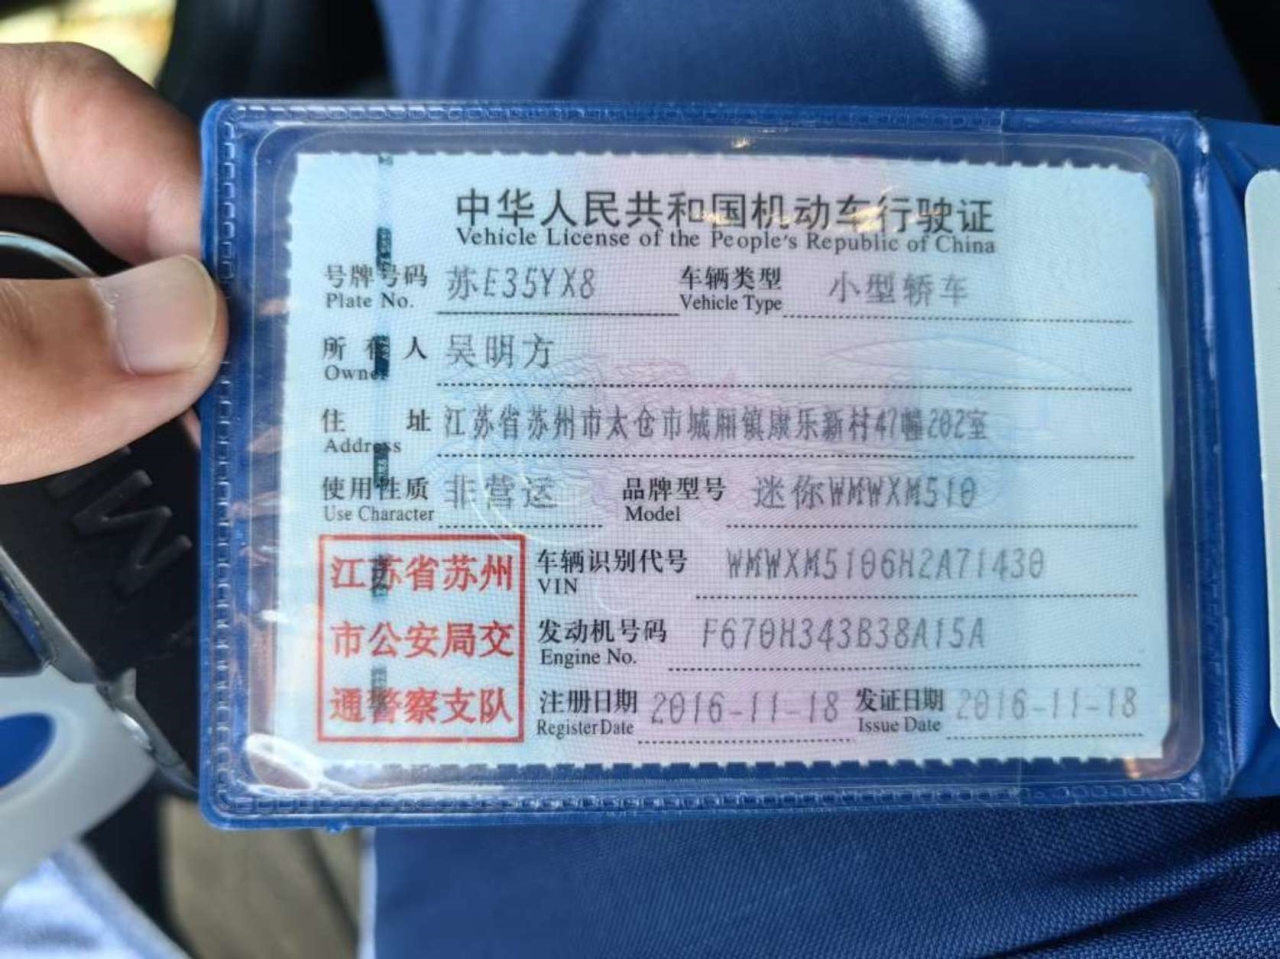 中华人民共和国机动车行驶证
Vehicle License of the People's Republic of China
号牌号码 苏E35YX8 车辆类型 小型轿车
Plate No. Vehicle Type
所有人 吴明方
Owner
住址 江苏省苏州市太仓市城厢镇康乐新村47幢202室
Address
使用性质 非营运 品牌型号 迷你WMWXM510
Use Character Model
车辆识别代号 WMWXM5106H2A71430
VIN
发动机号码 F670H343B38A15A
Engine No.
注册日期 2016-11-18 发证日期 2016-11-18
Register Date Issue Date
江苏省苏州
市公安局交
通警察支队